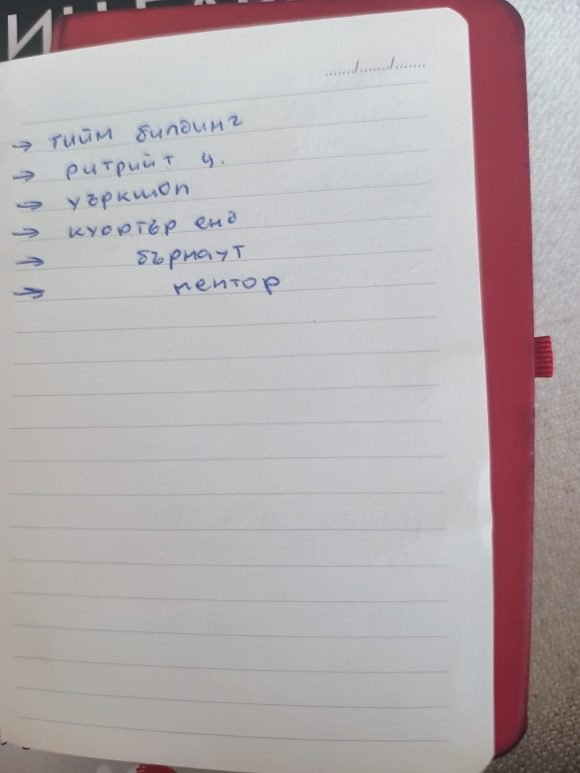 → тийм билдинг
→ ритрийт ч.
→ уъркшоп
→ куортър енд
→ бърнаут
→ ментор